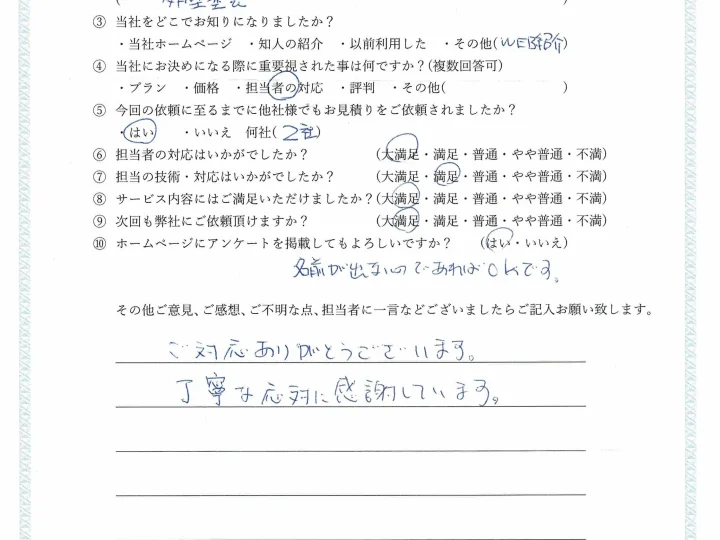 ③ 当社をどこでお知りになりましたか？
・当社ホームページ ・知人の紹介 ・以前利用した ・その他(WEB紹介)
④ 当社にお決めになる際に重要視された事は何ですか？(複数回答可)
・プラン ・価格 ・担当者の対応 ・評判 ・その他( )
⑤ 今回の依頼に至るまでに他社様でもお見積りをご依頼されましたか？
・はい ・いいえ 何社(2社)
⑥ 担当者の対応はいかがでしたか？ (大満足・満足・普通・やや普通・不満)
⑦ 担当の技術・対応はいかがでしたか？ (大満足・満足・普通・やや普通・不満)
⑧ サービス内容にはご満足いただけましたか？(大満足・満足・普通・やや普通・不満)
⑨ 次回も弊社にご依頼頂けますか？ (大満足・満足・普通・やや普通・不満)
⑩ ホームページにアンケートを掲載してもよろしいですか？ (はい・いいえ)
名前が出ないのであればOKです。
その他ご意見、ご感想、ご不明な点、担当者に一言などございましたらご記入お願い致します。
ご対応ありがとうございます。
丁寧な応対に感謝しています。